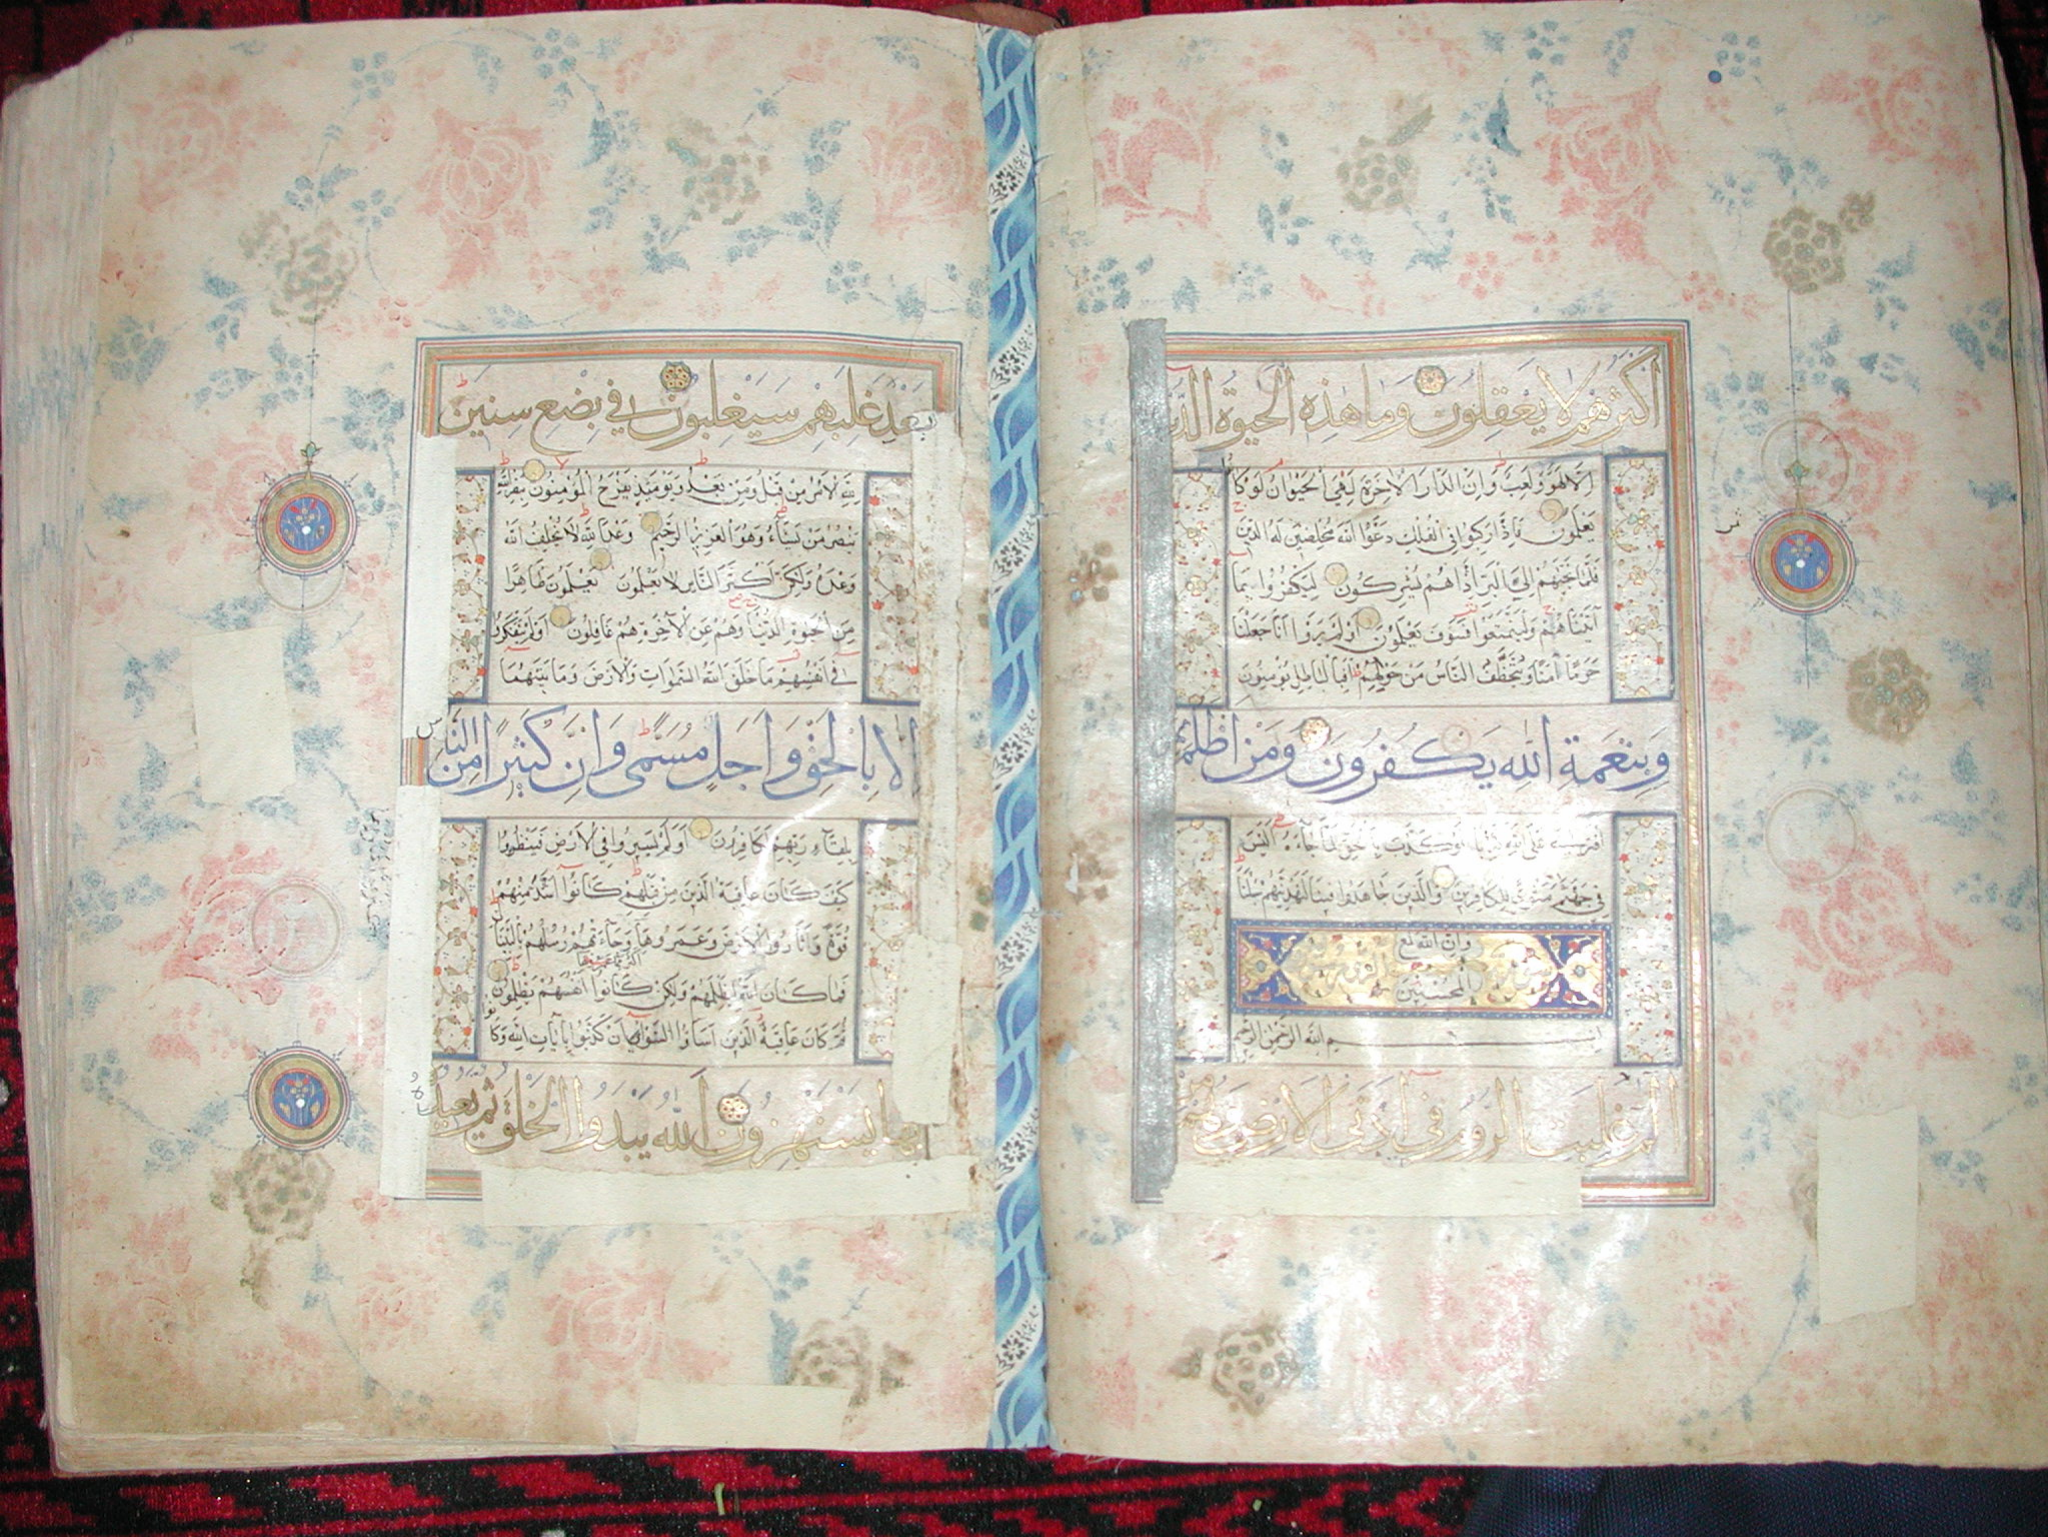 اكثرهم لا يعقلون وما هذه الحيوة الدنيا
الا لهو ولعب وان الدار الاخرة لهي الحيوان لو كانوا
يعلمون فاذا ركبوا في الفلك دعوا الله مخلصين له الدين
فلما نجيهم الى البر اذا هم يشركون ليكفروا بما
آتيناهم وليتمتعوا فسوف يعلمون اولم يروا انا جعلنا
حرما آمنا ويتخطف الناس من حولهم افبالباطل يؤمنون
وبنعمة الله يكفرون ومن اظلم ممن
افترى على الله كذبا او كذب بالحق لما جاءه اليس
في جهنم مثوى للكافرين والذين جاهدوا فينا لنهدينهم سبلنا
وان الله لمع
المحسنين
بسم الله الرحمن الرحيم
الم غلبت الروم في ادنى الارض وهم من
بعد غلبهم سيغلبون في بضع سنين
لله الامر من قبل ومن بعد ويومئذ يفرح المؤمنون بنصر الله
ينصر من يشاء وهو العزيز الرحيم وعد الله لا يخلف الله
وعده ولكن اكثر الناس لا يعلمون يعلمون ظاهرا
من الحيوة الدنيا وهم عن الآخرة هم غافلون اولم يتفكروا
في انفسهم ما خلق الله السموات والارض وما بينهما
الا بالحق واجل مسمى وان كثيرا من الناس
بلقآء ربهم لكافرون اولم يسيروا في الارض فينظروا
كيف كان عاقبة الذين من قبلهم كانوا اشد منهم
قوة واثاروا الارض وعمروها وجآءتهم رسلهم بالبينات
اكثر مما عمروها
فما كان الله ليظلمهم ولكن كانوا انفسهم يظلمون
ثم كان عاقبة الذين اساؤا السوآى ان كذبوا بآيات الله وكانوا
بها يستهزؤن الله يبدؤا الخلق ثم يعيده